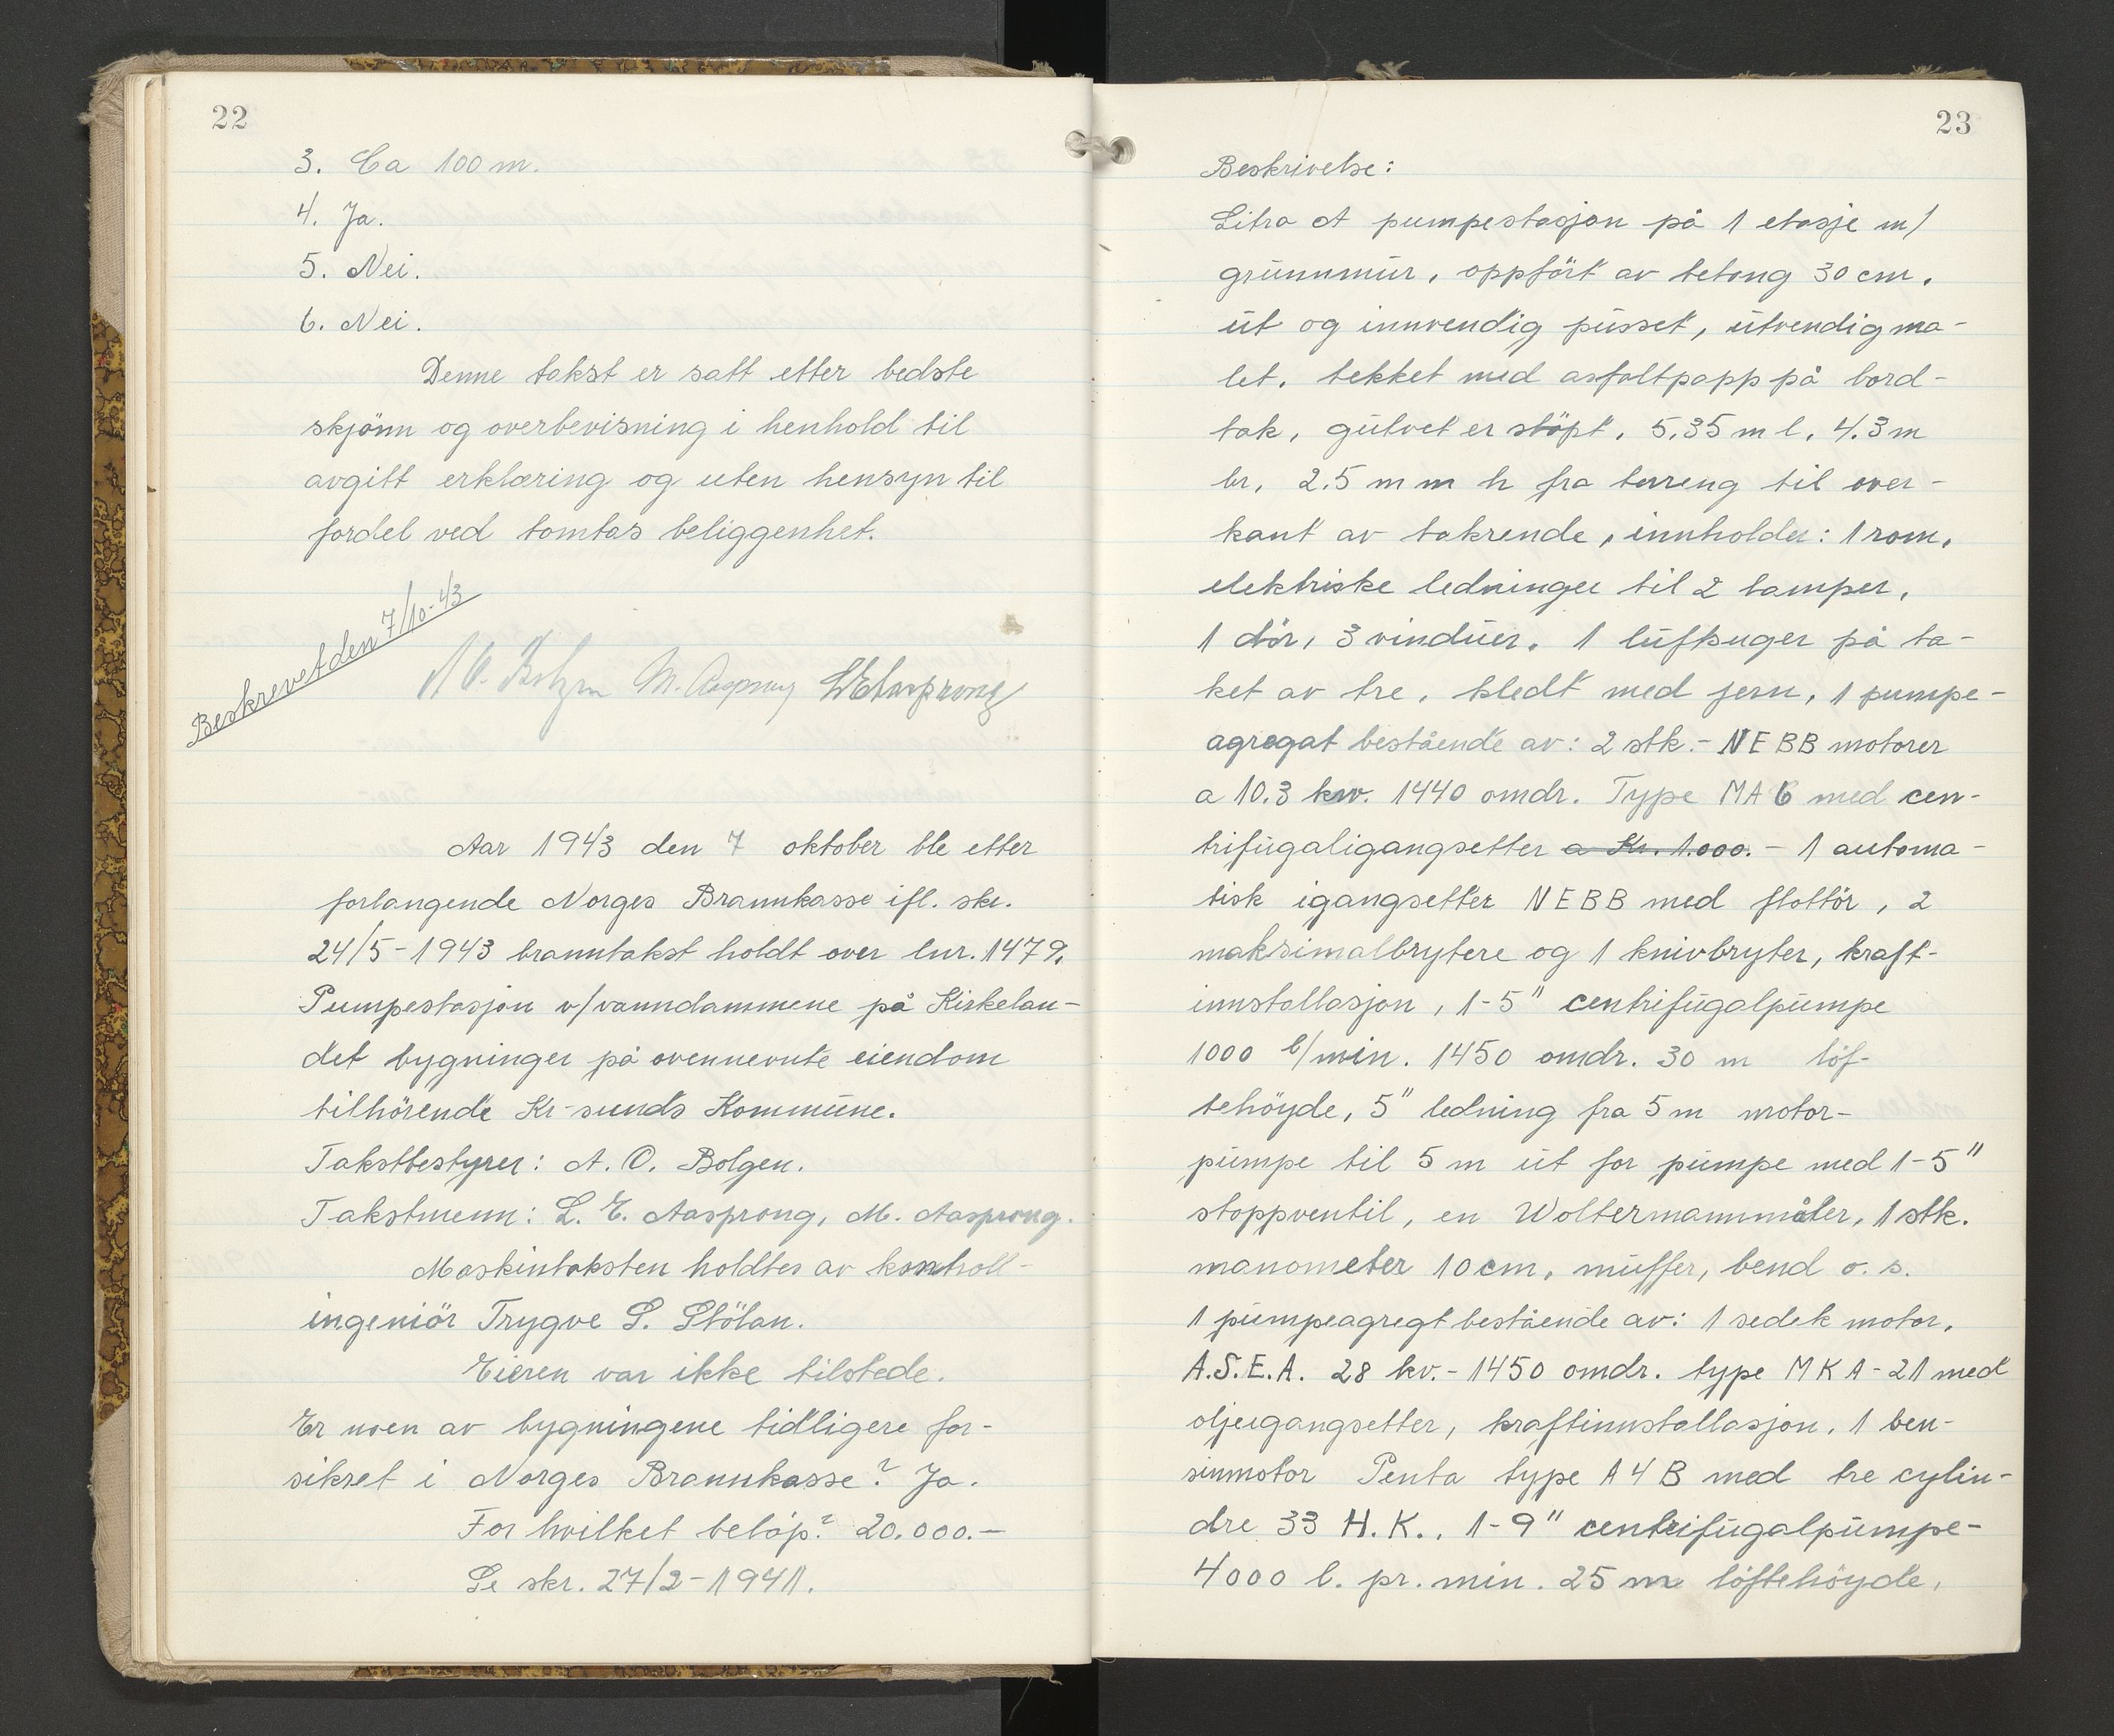 22
3. Ca 100 m.
4. Ja.
5. Nei.
6. Nei.
Denne takst er satt etter bedste
skjönn og overbevisning i henhold til
avgitt erklæring og uten hensyn til
fordel ved tomtas beliggenhet.
Beskrevet den 7/10-43
M. Aasprong L E Aasprong
Aar 1943 den 7 oktober ble etter
forlangende Norges Brannkasse ifl. skr.
24/5-1943 branntakst holdt over lnr. 1479.
Pumpestasjon v/vanndammene på Kirkelan-
det bygninger på ovennevnte eiendom
tilhörende Kr-sunds Kommune.
Takstbestyrer: A. O. Bolgen.
Takstmenn: L. E. Aasprong, M. Aasprong.
Maskintaksten holdtes av kontroll-
ingeniör Trygve S. Stölan.
Eieren var ikke tilstede.
Er noen av bygningene tidligere for-
sikret i Norges Brannkasse? Ja.
For hvilket belöp? 20.000.-
Se skr. 27/2-1941.
23
Beskrivelse:
Litra A pumpestasjon på 1 etasje m/
grunnmur, oppfört av betong 30 cm.
ut og innvendig pusset, utvendig ma-
let. tekket med asfaltpapp på bord-
tak, gulvet er stöpt. 5.35 m l. 4.3 m
br. 2.5 m m h fra terreng til over-
kant av takrende, innholder: 1 rom.
elektriske ledninger til 2 lamper,
1 dör, 3 vinduer. 1 luftsuger på ta-
ket av tre, kledt med jern, 1 pumpe-
agregat bestående av: 2 stk.- NEBB motorer
a 10.3 kw. 1440 omdr. Type MA 6 med cen-
trifugaligangsetter a Kr. 1.000.- 1 automa-
tisk igangsetter NEBB med flottör, 2
maksimalbrytere og 1 knivbryter, kraft-
innstallasjon, 1-5" centrifugalpumpe
1000 l/min. 1450 omdr. 30 m löf-
tehöyde, 5" ledning fra 5 m motor-
pumpe til 5 m ut for pumpe med 1-5"
stoppventil, en Woltermannmåler, 1 stk.
manometer 10 cm, muffer, bend o. s.
1 pumpeagregt bestående av: 1 sedek motor.
A.S.E.A. 28 kv.- 1450 omdr. type MKA-21 med
oljeigangsetter, kraftinnstallasjon. 1 ben-
sinmotor Penta type A4B med tre cylin-
dre 33 H.K.. 1-9" centrifugalpumpe-
4000 l. pr. min. 25 m löftehöyde,